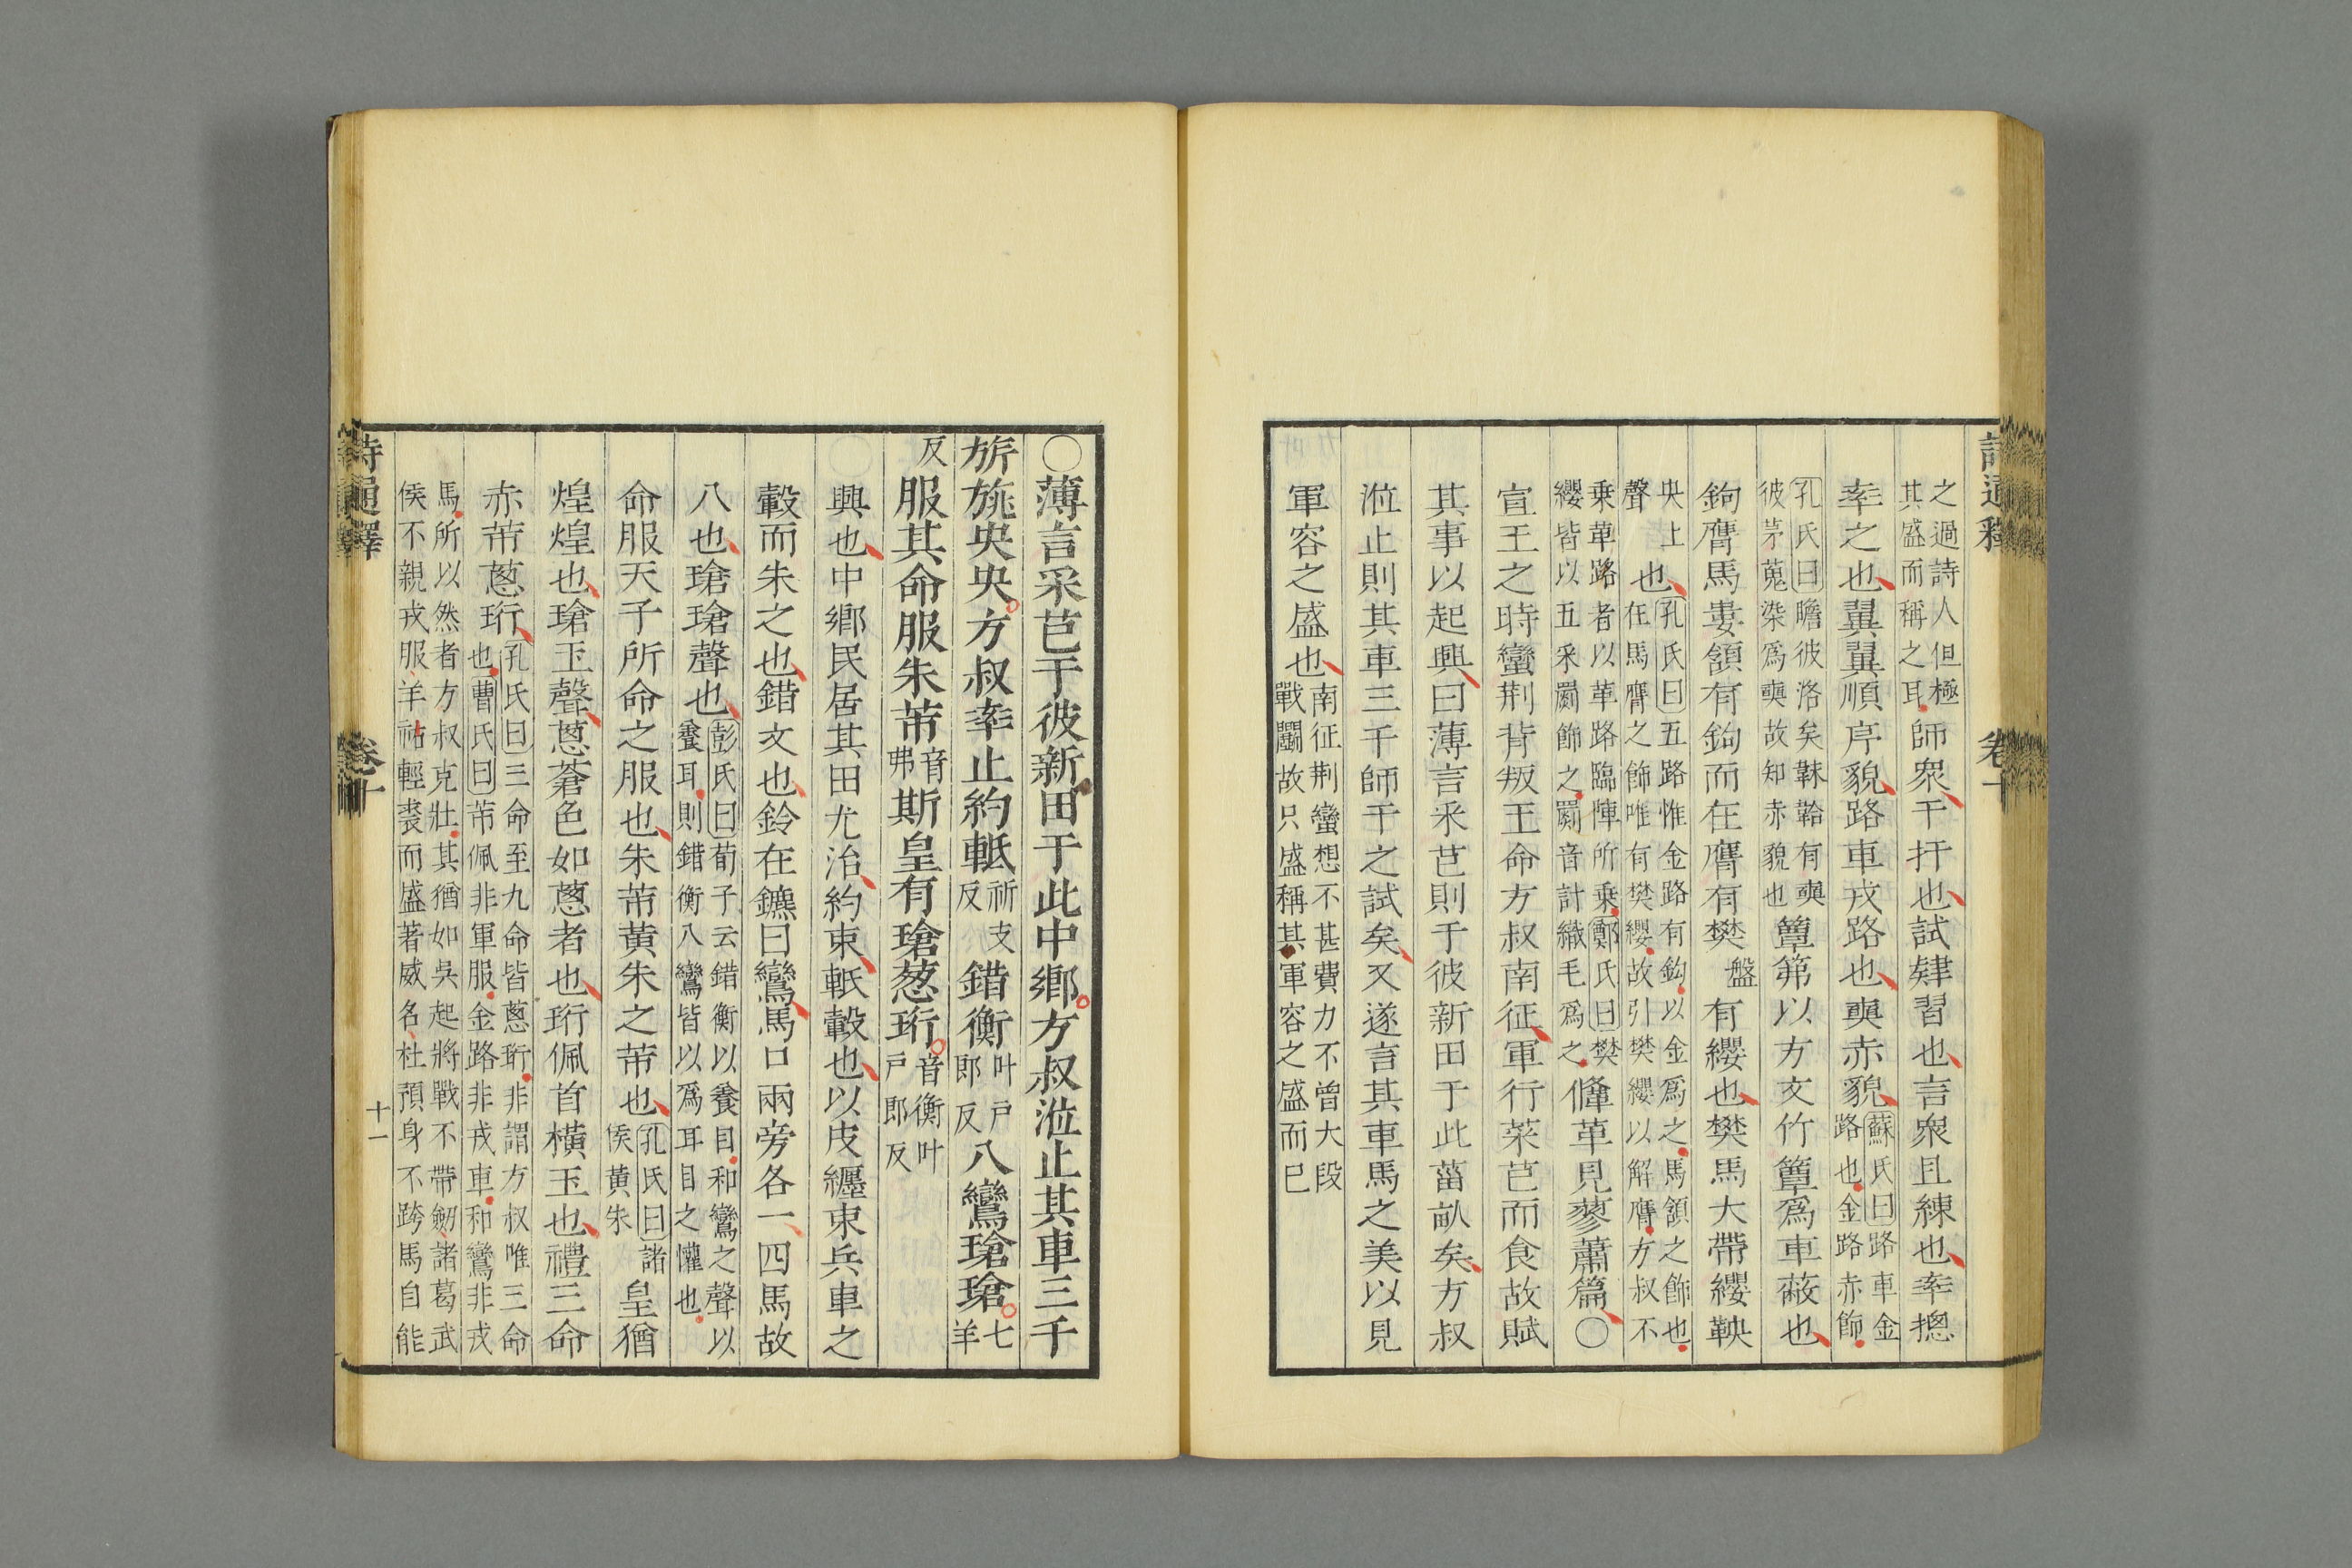 詩通釋 卷十
之過詩人但極
其盛而稱之耳師衆干扞也試肄習也言衆且練也率摠
率之也翼翼順序貌路車戎路也奭赤貌蘇氏曰路車金
路也金路赤飾
孔氏曰瞻彼洛矣韎韐有奭
彼茅蒐染爲奭故知赤貌也簟笰以方文竹簟爲車蔽也
鉤膺馬婁頷有鉤而在膺有樊盤有纓也樊馬大帶纓鞅
央上
聲也孔氏曰五路惟金路有鉤以金爲之馬頷之飾也
在馬膺之飾唯有樊纓故引樊纓以解膺方叔不
乗革路者以革路臨陣所乗鄭氏曰樊
纓皆以五采罽飾之罽音計織毛爲之鞗革見蓼蕭篇○
宣王之時蠻荆背叛王命方叔南征軍行菜芑而食故賦
其事以起興曰薄言采芑則于彼新田于此菑畝矣方叔
涖止則其車三千師干之試矣又遂言其車馬之美以見
軍容之盛也南征荆蠻想不甚費力不曾大段
戰鬭故只盛稱其軍容之盛而已
○薄言采芑于彼新田于此中鄉方叔涖止其車三千
旂旐央央方叔率止約軝祈支
反錯衡叶戶
郎反八鸞瑲瑲七
羊
反服其命服朱芾音
弗斯皇有瑲葱珩音衡叶
戶郎反
興也中鄉民居其田尤治約束軝轂也以皮纒束兵車之
轂而朱之也錯文也鈴在鑣曰鸞馬口兩旁各一四馬故
八也瑲瑲聲也彭氏曰荀子云錯衡以養目和鸞之聲以
養耳則錯衡八鸞皆以爲耳目之懽也
命服天子所命之服也朱芾黄朱之芾也孔氏曰諸
侯黄朱皇猶
煌煌也瑲玉聲葱蒼色如葱者也珩佩首橫玉也禮三命
赤芾葱珩孔氏曰三命至九命皆葱珩非謂方叔唯三命
也曹氏曰芾佩非軍服金路非戎車和鸞非戎
馬所以然者方叔克壯其猶如吳起將戰不帶劒諸葛武
侯不親戎服羊祜輕裘而盛著威名杜預身不跨馬自能
詩通釋 卷十 十一